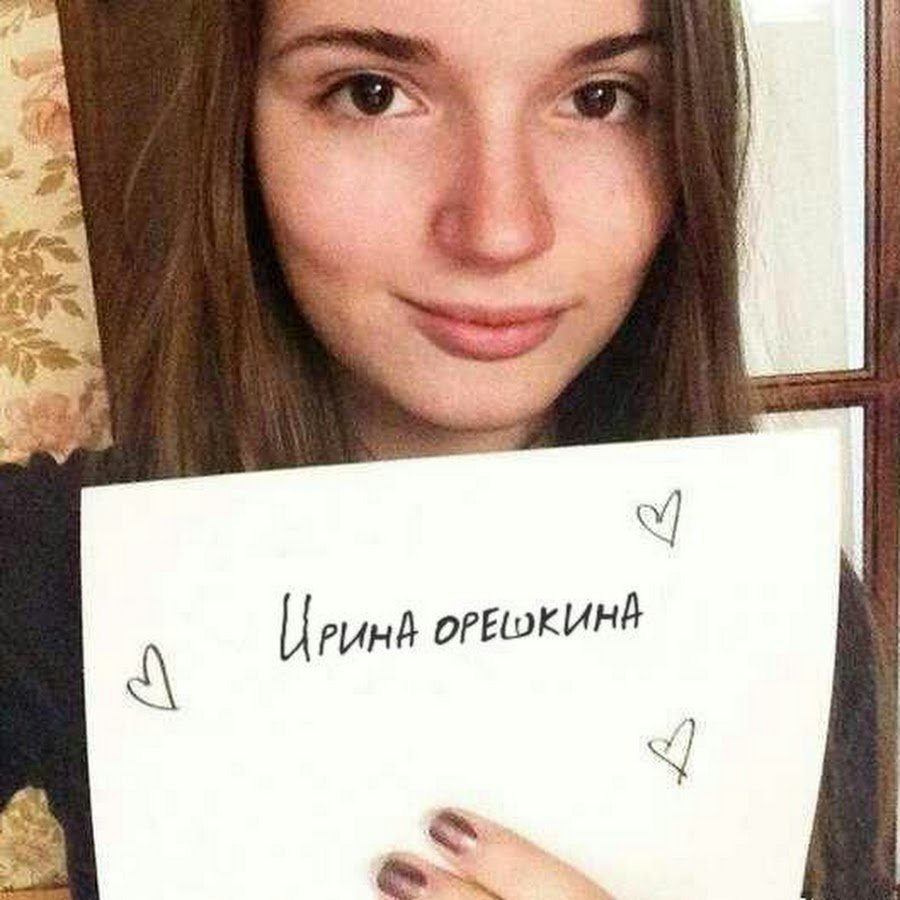 Ирина орешкина